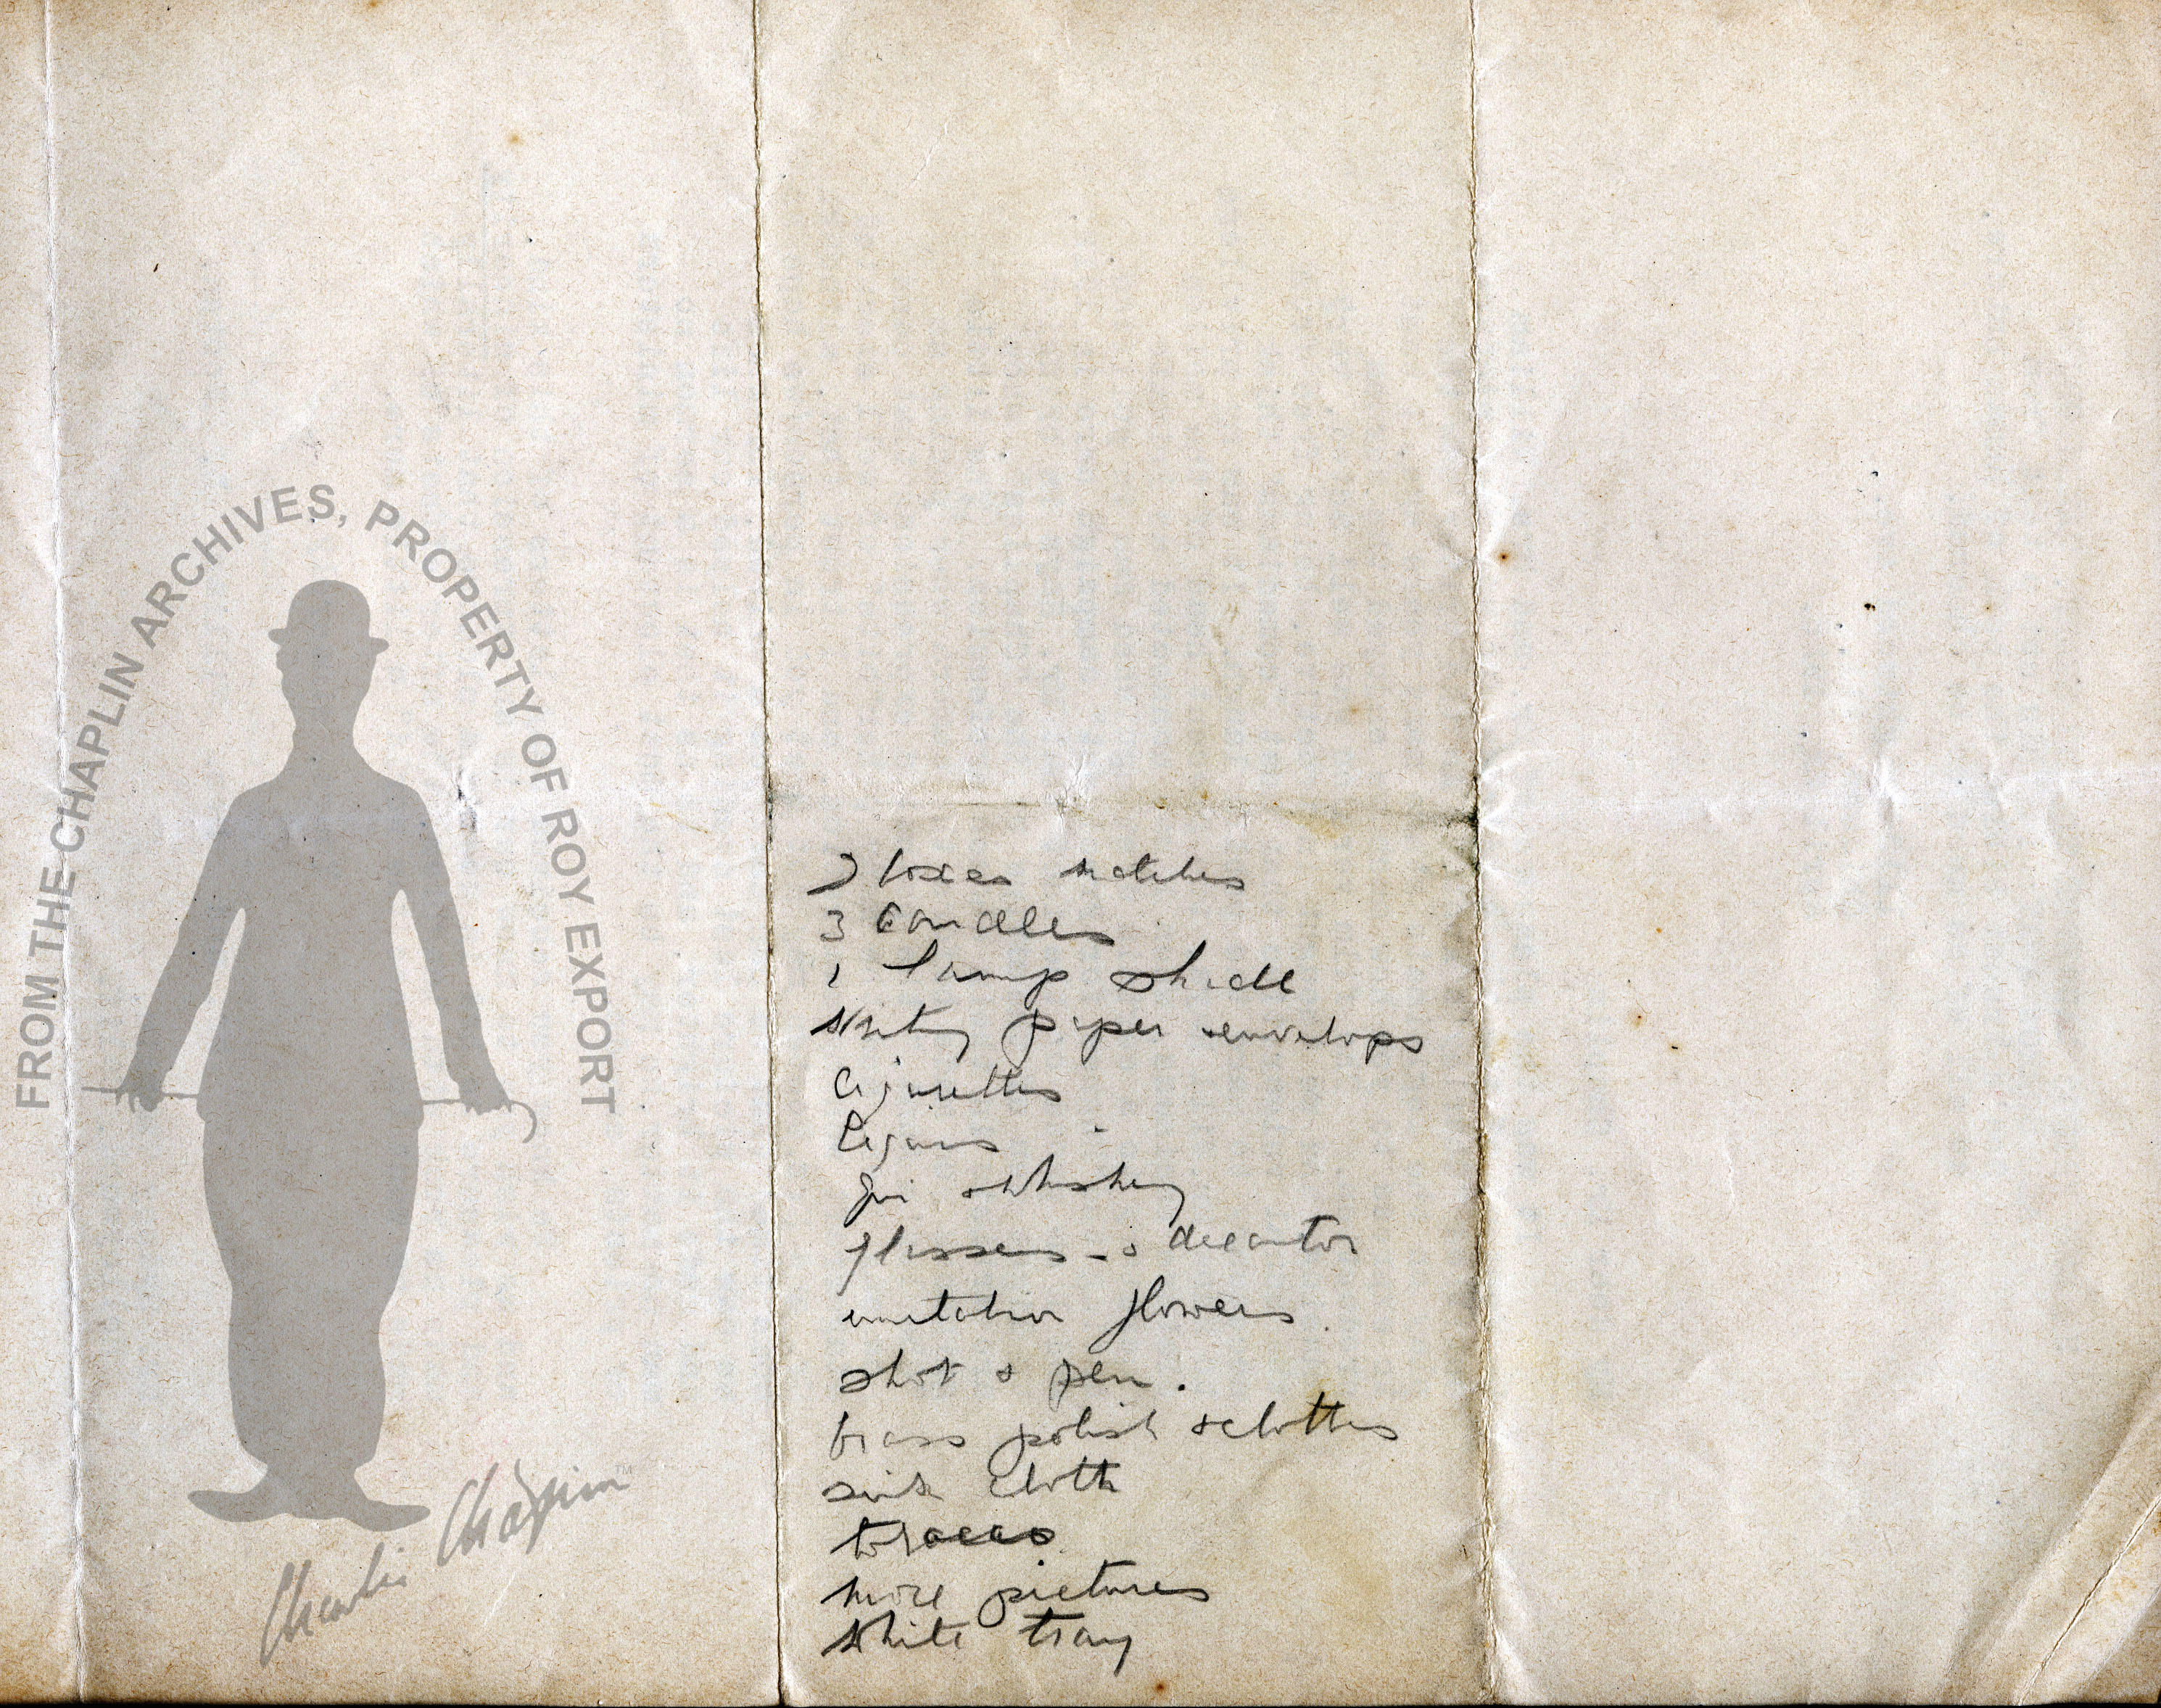 FROM THE CHAPLIN ARCHIVES, PROPERTY OF ROY EXPORT
Charlie Chaplin ™
2 boxes matches
3 Candles
1 lamp shade
Writing paper & envelops
Cigarettes
Cigars
Gin & Whiskey
glasses - & decantor
imitation flowers.
& pen.
brass polish & clothes
sink cloth
more pictures
White tray